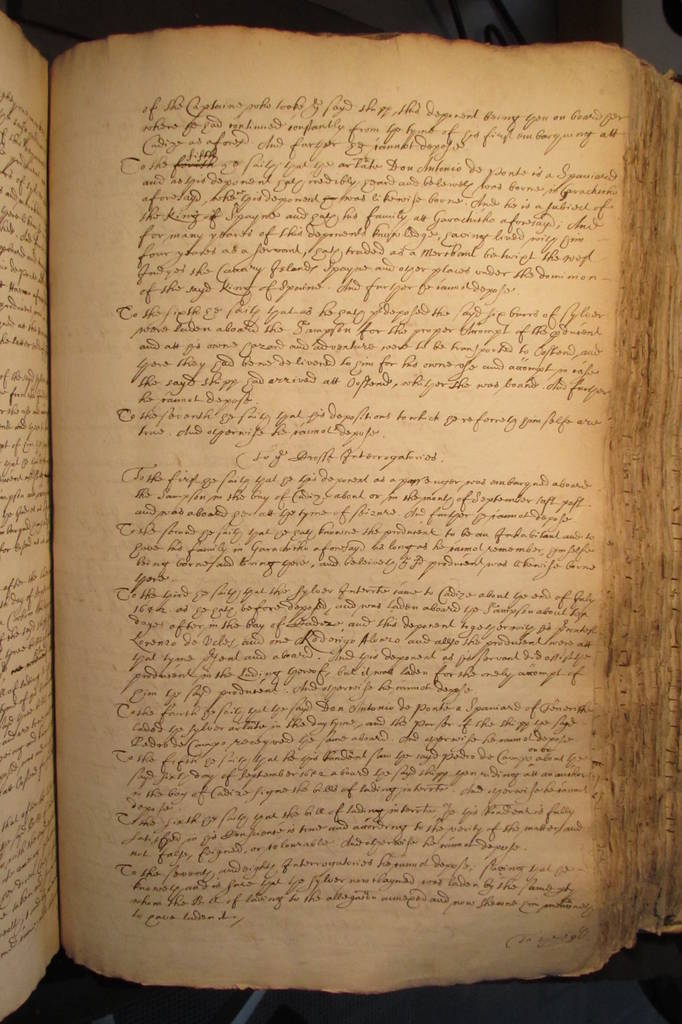 of the Captaine who tooke the sayd shipp this deponent being then on board her
where he had continued constantly from the tyme of his first embarquing att
Cadiz as aforesd. And further he cannot depose
To the fifth he saith that the arlate Don Antonio de Ponte is a Spaniard
and as this deponent hath credibly heard and beleeveth was borne in Garachico
aforesayd, where this deponent was likewise borne. And he is a subiect of
the King of Spayne and hath his family att Garachicho aforesayd, And
for many yeares of this deponents knowledge, having lived with him
four yeares as a servant, hath traded as a Merchant betwixt the West
Indyes the Canary Islands Spayne and other places under the dominion
of the sayd King of Spaine. And further he cannot depose
To the sixth he saith that as he hath predeposed the sayd six barrs of sylver
were laden aboard the Sampson for the proper Accompt of the producent
and att his owne hazard and adventure were to be transported to Ostend, and
there they had bene delivered to him for his owne use and accompt in case
the sayd shipp had arrived att Ostend, whither she was bound. And further
he cannot depose.
To the seventh he saith that his depositions to which he referreth himselfe are
true. And otherwise he cannot depose.
To the Crosse Interrogatories.
To the first he saith that he this deponent as a passenger was embarqued aboard
the Sampson in the bay of Cadiz about or in the month of September last past
and was aboard her att the tyme of seizure. And further he cannot depose
To the second he saith that he hath knowne the producent to be an Inhabitant and to
have his family in Garachicho aforesayd as long as he cannot remember, himselfe
being borne and living there, and beleeveth the sd producent was likewise borne
there.
To the third he saith that the sylver Interrate came to Cadiz about the end of July
1652 as he hath before deposed, and was laden aboard the Sampson about
dayes after in the bay of Cadize, and this deponent together with his
Lorenzo de and one Roderigo Alonzo and allso the producent were att
that tyme and aboard. And this deponent as his servant did assist the
producent in the Lading thereof, but it was laden for the onely accompt of
him the sayd producent. And otherwise he cannot depose
To the fourth he saith that the sayd Don Antonio de Ponte a Spaniard of Tenerife
laded the sylver arlate in the day tyme, and the Purser of the shipp the sayd
Pedro de Campo receyved the same aboard. And otherwise he cannot depose
To the fifth he saith that he this Rendent saw the sayd Pedro de Campo on or about the
sayd day of September 1652 aboard the sayd shipp then riding att an anchor
in the bay of Cadize signe the bills of lading interrate. And otherwise he cannot
depose
To the sixth he saith that the bill of lading interrate as this Rendent is fully
satisfied in his Conscience is true and according to the verity of the matter and
not false, feigned, or colourable. And otherwise he cannot depose.
To the seventh, and eighth Interrogatories he cannot depose, saving that he
knoweth and is sure that the sylver now claymed was laden by the same
whom the Bill of lading to the allegation annexed and now shewne him
to have laden it,